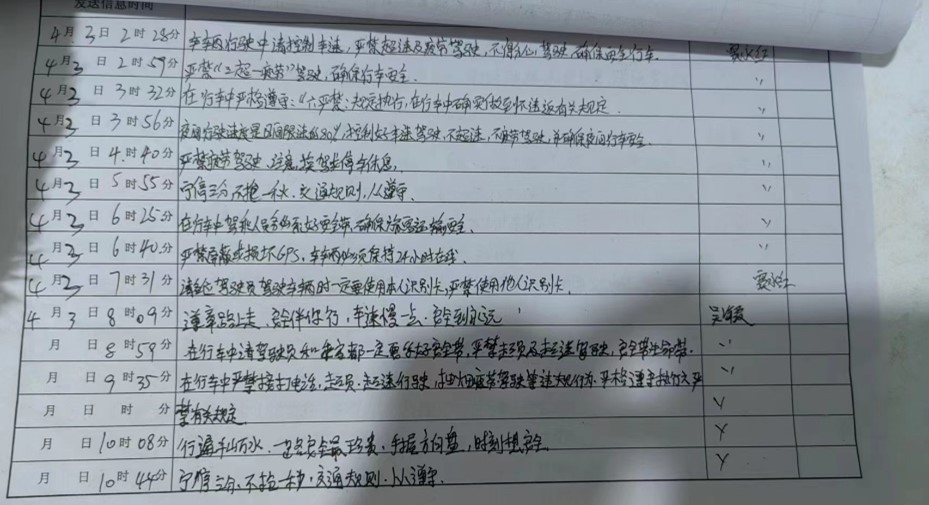 发送信息时间
4月3日2时28分 车辆行驶中请控制车速,严禁超速及疲劳驾驶,不得私心驾驶,确保安全行车.
4月3日2时59分 严禁“三超一疲劳”驾驶,确保行车安全. 〃
4月3日3时32分 在行车中严格遵守:“六严禁:规定执行,在行车中确 有关规定. 〃
4月3日3时56分 夜间行驶速度是日间限速的80%,控制好车速驾驶,不超速,不疲劳驾驶,并确保夜间行车安全. 〃
4月3日4时40分 严禁疲劳驾驶,注意 停车休息, 〃
4月3日5时55分 宁停三分不抢一秒.交通规则,人人遵守. 〃
4月3日6时25分 在行车中驾乘人员务必系好安全带,确保 安全. 〃
4月3日6时40分 严禁屏蔽或损坏GPS,车辆必须保持24小时在线. 〃
4月3日7时31分 请各位驾驶员驾驶车辆时一定要使用本人识别卡,严禁使用他人识别卡.
4月3日8时09分 遵章路上走,安全伴你行,车速慢一点.安全到永远
月 日8时59分 在行车中请驾驶员和乘客都一定要系好安全带,严禁超员及超速驾驶,安全带生命带. 〃
月 日9时35分 在行车中严禁接打电话,超员.超速行驶,抽烟疲劳驾驶等违规行为.严格遵守执行六严 〃
月 日 时 分 禁有关规定
月 日10时08分 行通千山万水,一路安全最珍贵.手握方向盘,时刻想安全
月 日10时44分 宁停三分,不抢一秒,交通规则.人人遵守.